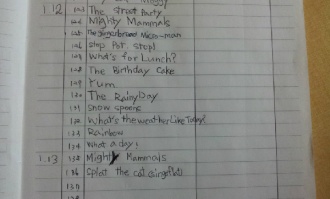 1.12 123 The Street Party
124 Mighty Mammals
125 The Gingerbread Micro-man
126 Stop Pat, stop!
127 What's for Lunch?
128 The Birthday Cake
129 Yum
130 The Rainy Day
131 Snow
132 What's the weather Like Today?
133 Rainbow
134 What a day!
1.13 135 Mighty Mammals
136 Splat the cat
137
138